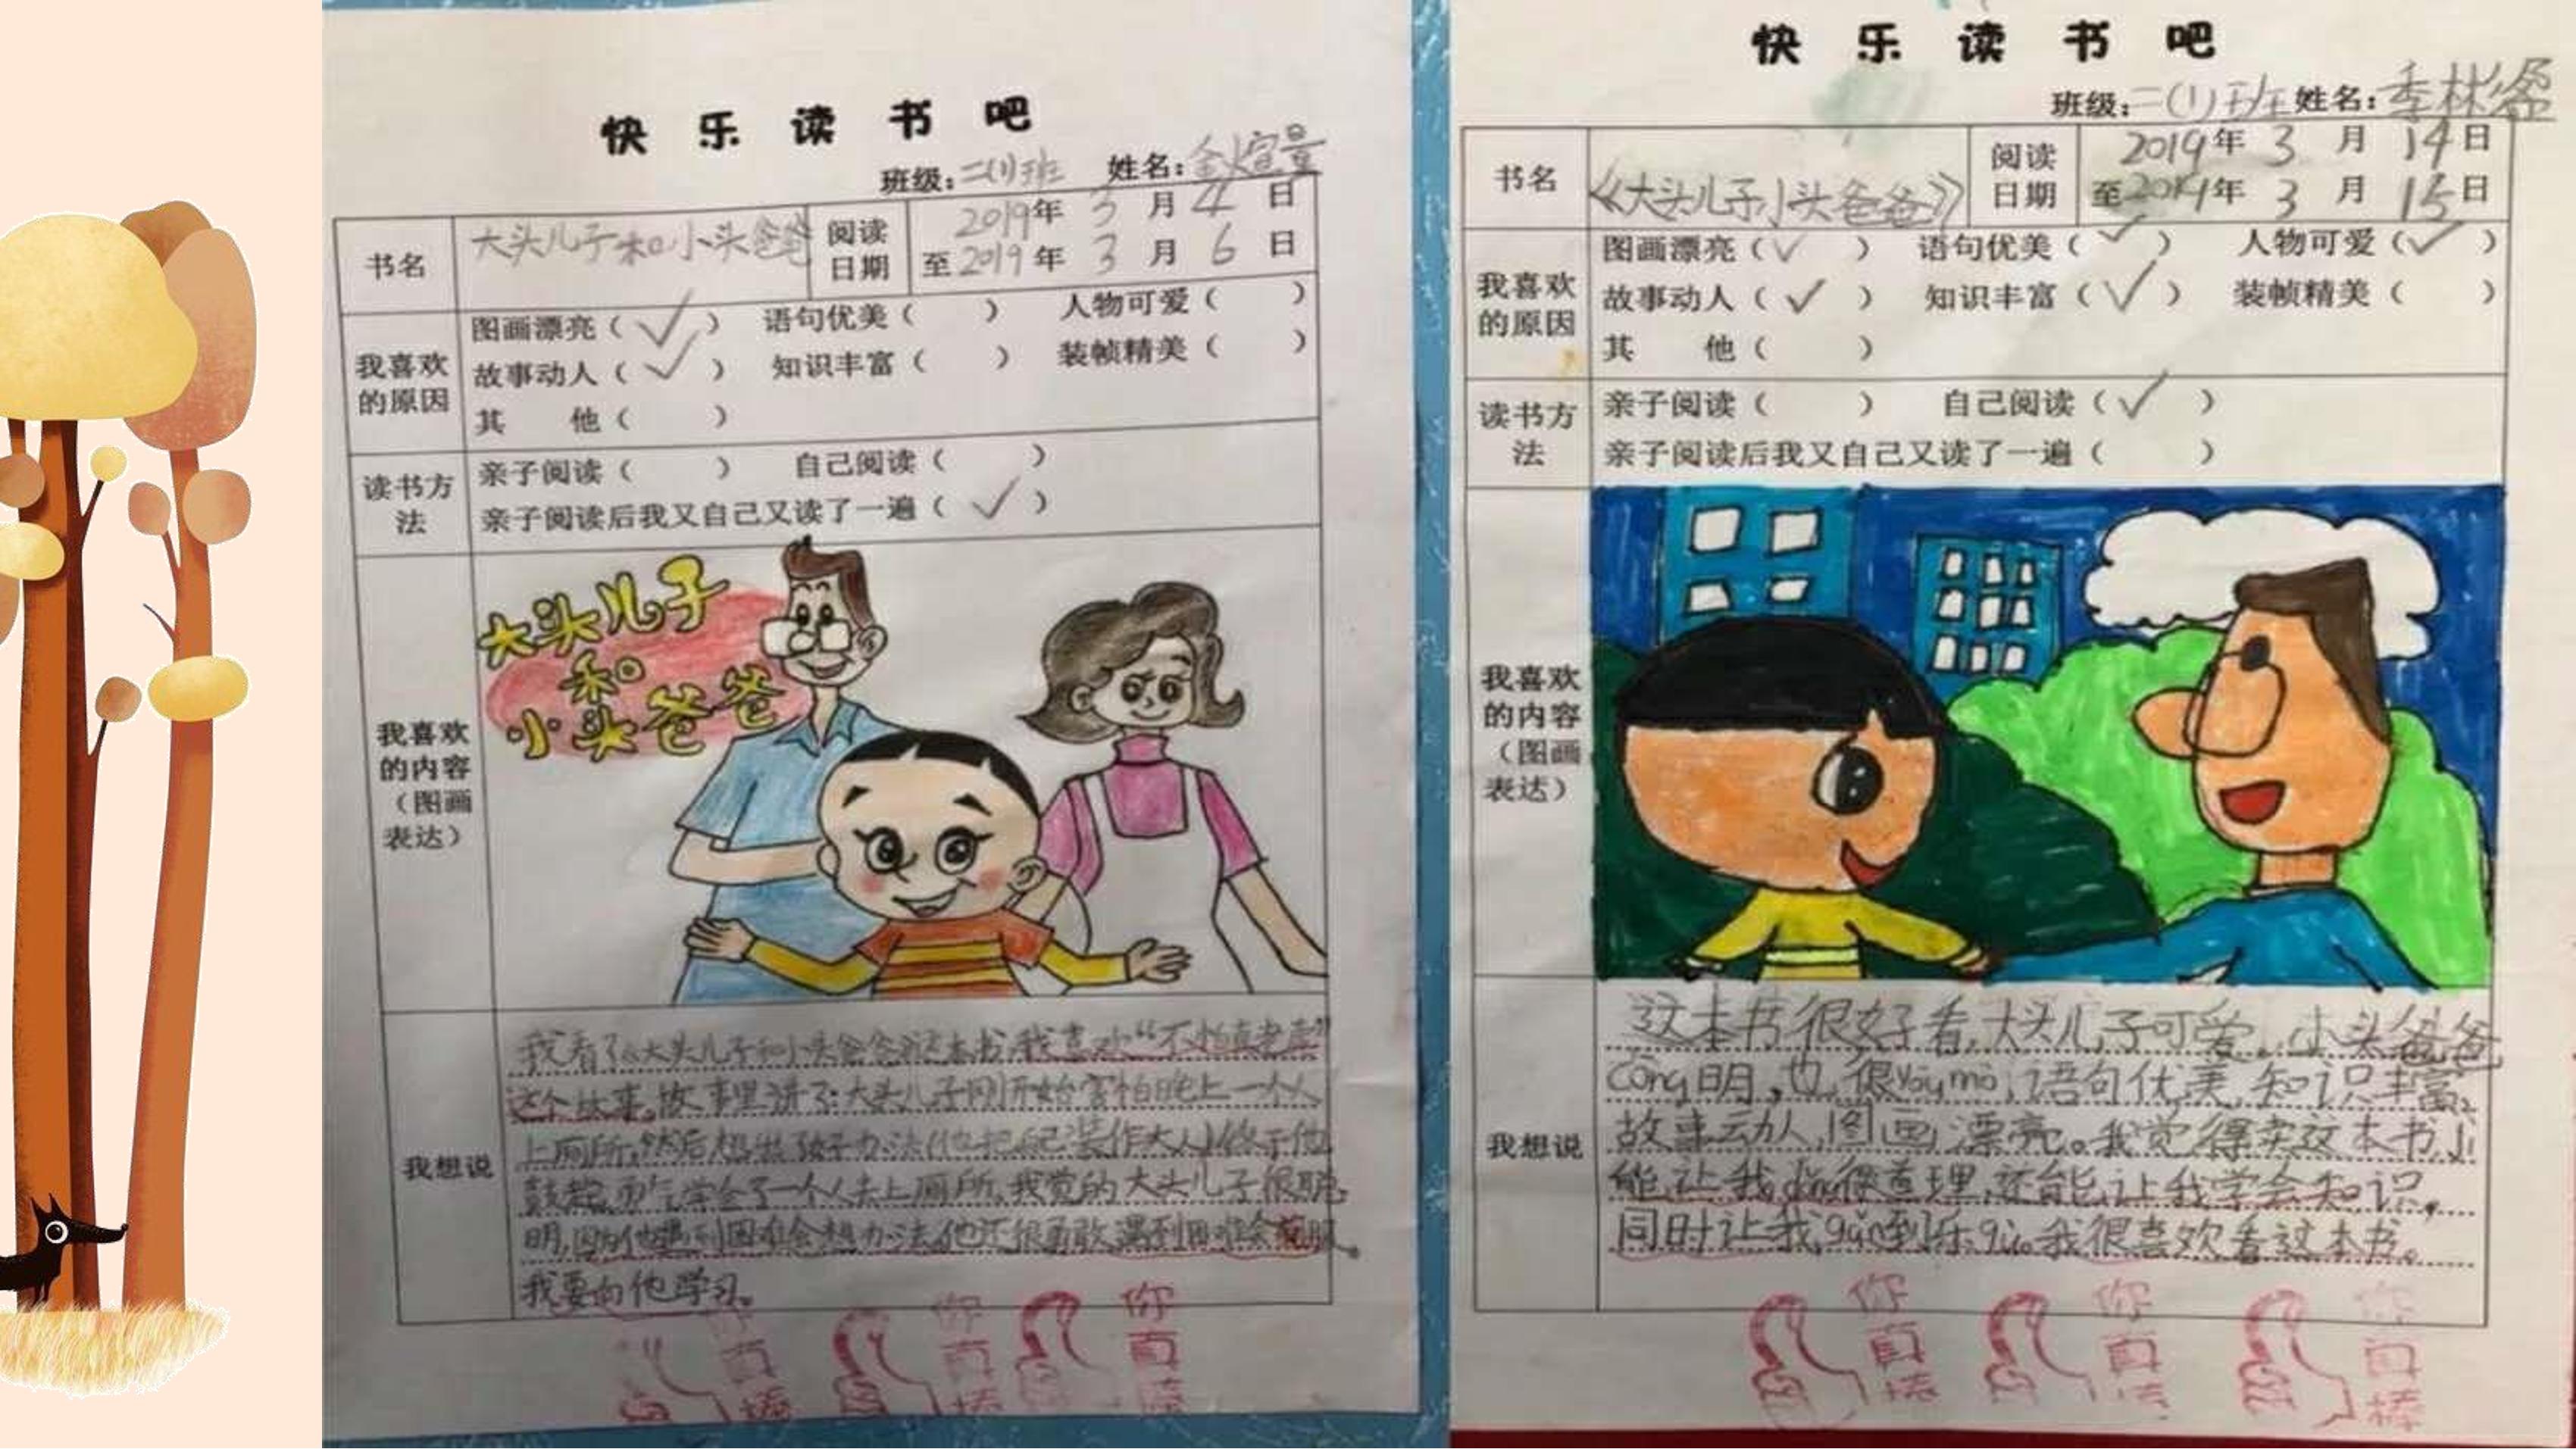 快乐读书吧
班级：二(1)班 姓名：金煊量
书名 大头儿子和小头爸爸 阅读日期 2019年3月4日
至2019年3月6日
我喜欢的原因 图画漂亮（✓） 语句优美（ ） 人物可爱（ ）
故事动人（✓） 知识丰富（ ） 装帧精美（ ）
其 他（ ）
读书方法 亲子阅读（ ） 自己阅读（ ）
亲子阅读后我又自己又读了一遍（✓）
我喜欢的内容（图画表达）
大头儿子
和
小头爸爸
我想说
我看了《大头儿子和小头爸爸》这本书,我喜欢“不怕
这个故事。故事里讲了:大头儿子刚开始害怕晚上一个人
上厕所,然后想出了好办法(他把自己装作大人)终于他
鼓起勇气学会了一个人去上厕所,我觉的大头儿子很聪
明,因为他遇到困难会想办法,他还很勇敢,遇到困难会克服。
我要向他学习。
你真棒
你真棒
你真棒
快乐读书吧
班级：二(1)班 姓名：季林
书名 《大头儿子小头爸爸》 阅读日期 2019年3月14日
至2019年3月15日
我喜欢的原因 图画漂亮（✓） 语句优美（✓） 人物可爱（✓）
故事动人（✓） 知识丰富（✓） 装帧精美（ ）
其 他（ ）
读书方法 亲子阅读（ ） 自己阅读（✓）
亲子阅读后我又自己又读了一遍（ ）
我喜欢的内容（图画表达）
我想说
这本书很好看,大头儿子可爱,小头爸爸
cōng明,也很yōu mò,语句优美,知识丰富,
故事动人,图画漂亮。我觉得卖这本书不
能让我dǒng很道理,还能让我学会知识,
同时让我gǎn到乐qù。我很喜欢看这本书。
你真棒
你真棒
你真棒